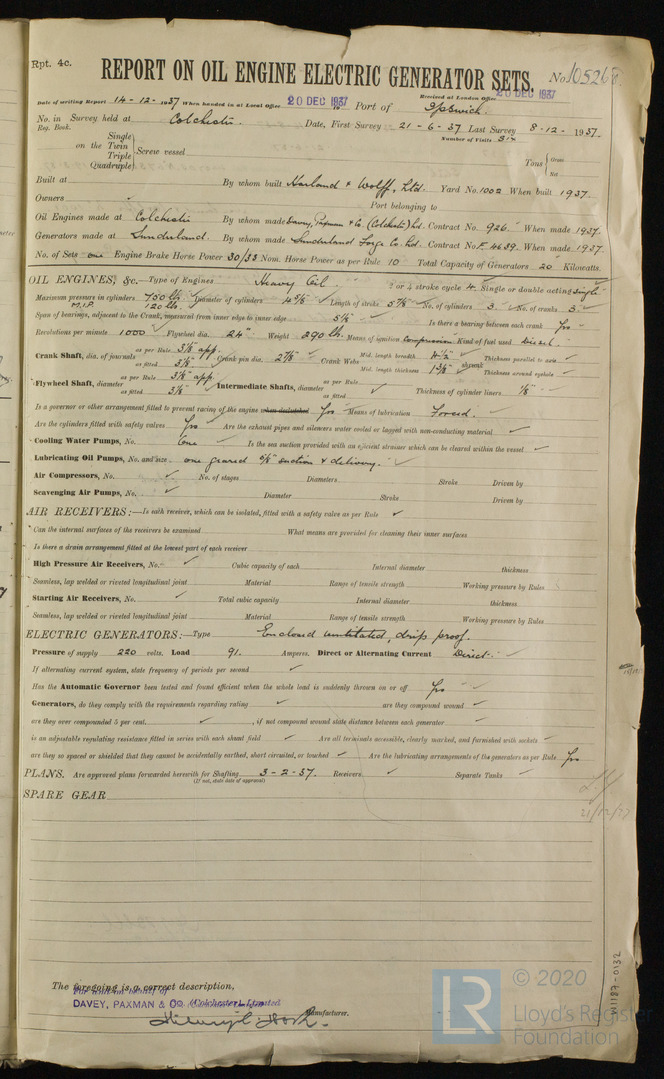 Rpt. 4c.
REPORT ON OIL ENGINE ELECTRIC GENERATOR SETS. No. 10526
Received at London Office 20 DEC 1937
Date of writing Report 14-12-1937 When handed in at Local Office 20 DEC 1937 Port of Ipswich.
No. in Survey held at Colchester. Date, First Survey 21-6-37 Last Survey 8-12-1937.
Reg. Book. Number of Visits Six
on the Single Twin Triple Quadruple Screw vessel Tons Gross Net
Built at By whom built Harland & Wolff, Ltd. Yard No. 1002 When built 1937.
Owners Port belonging to
Oil Engines made at Colchester By whom made Davey, Paxman & Co. (Colchester) Ltd. Contract No. 926. When made 1937.
Generators made at Sunderland. By whom made Sunderland Forge Co. Ltd. Contract No. F. 4639. When made 1937.
No. of Sets one Engine Brake Horse Power 30/33 Nom. Horse Power as per Rule 10 Total Capacity of Generators 20 Kilowatts.
OIL ENGINES, &c.—Type of Engines Heavy Oil 2 or 4 stroke cycle 4. Single or double acting Single
Maximum pressure in cylinders 700 lb. Diameter of cylinders Length of stroke No. of cylinders 3. No. of cranks 3.
M.I.P. 120 lbs.
Span of bearings, adjacent to the Crank, measured from inner edge to inner edge Is there a bearing between each crank Yes
Revolutions per minute 1000 Flywheel dia. 24" Weight 290 lb. Means of ignition Compression Kind of fuel used Diesel.
Crank Shaft, dia. of journals as per Rule 3 1/8 app. as fitted Crank pin dia. 2 7/8 Crank Webs Mid. length breadth Mid. length thickness shrunk Thickness parallel to axis Thickness around eyehole
Flywheel Shaft, diameter as per Rule 3 1/8 app. as fitted 3 1/8 Intermediate Shafts, diameter as per Rule as fitted Thickness of cylinder liners
Is a governor or other arrangement fitted to prevent racing of the engine when declutched Yes Means of lubrication Forced.
Are the cylinders fitted with safety valves Yes Are the exhaust pipes and silencers water cooled or lagged with non-conducting material
Cooling Water Pumps, No. One Is the sea suction provided with an efficient strainer which can be cleared within the vessel
Lubricating Oil Pumps, No. and size one geared 5/8 suction & delivery.
Air Compressors, No. No. of stages Diameters Stroke Driven by
Scavenging Air Pumps, No. Diameter Stroke Driven by
AIR RECEIVERS:—Is each receiver, which can be isolated, fitted with a safety valve as per Rule
Can the internal surfaces of the receivers be examined What means are provided for cleaning their inner surfaces
Is there a drain arrangement fitted at the lowest part of each receiver
High Pressure Air Receivers, No. Cubic capacity of each Internal diameter thickness
Seamless, lap welded or riveted longitudinal joint Material Range of tensile strength Working pressure by Rules
Starting Air Receivers, No. Total cubic capacity Internal diameter thickness
Seamless, lap welded or riveted longitudinal joint Material Range of tensile strength Working pressure by Rules
ELECTRIC GENERATORS:—Type Enclosed ventilated, drip proof.
Pressure of supply 220 volts. Load 91. Amperes. Direct or Alternating Current Direct.
If alternating current system, state frequency of periods per second
Has the Automatic Governor been tested and found efficient when the whole load is suddenly thrown on or off Yes
Generators, do they comply with the requirements regarding rating are they compound wound
are they over compounded 5 per cent. , if not compound wound state distance between each generator
is an adjustable regulating resistance fitted in series with each shunt field Are all terminals accessible, clearly marked, and furnished with sockets
are they so spaced or shielded that they cannot be accidentally earthed, short circuited, or touched Are the lubricating arrangements of the generators as per Rule Yes
PLANS. Are approved plans forwarded herewith for Shafting 3-2-37. Receivers Separate Tanks
(If not, state date of approval)
SPARE GEAR
21/12/37
The foregoing is a correct description,
For and on behalf of
DAVEY, PAXMAN & CO. (Colchester) Limited
Manufacturer.
W1187-0132
LR
© 2020
Lloyd's Register
Foundation